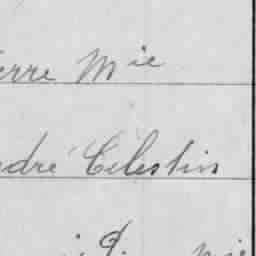 erre Mie
dré Celestin